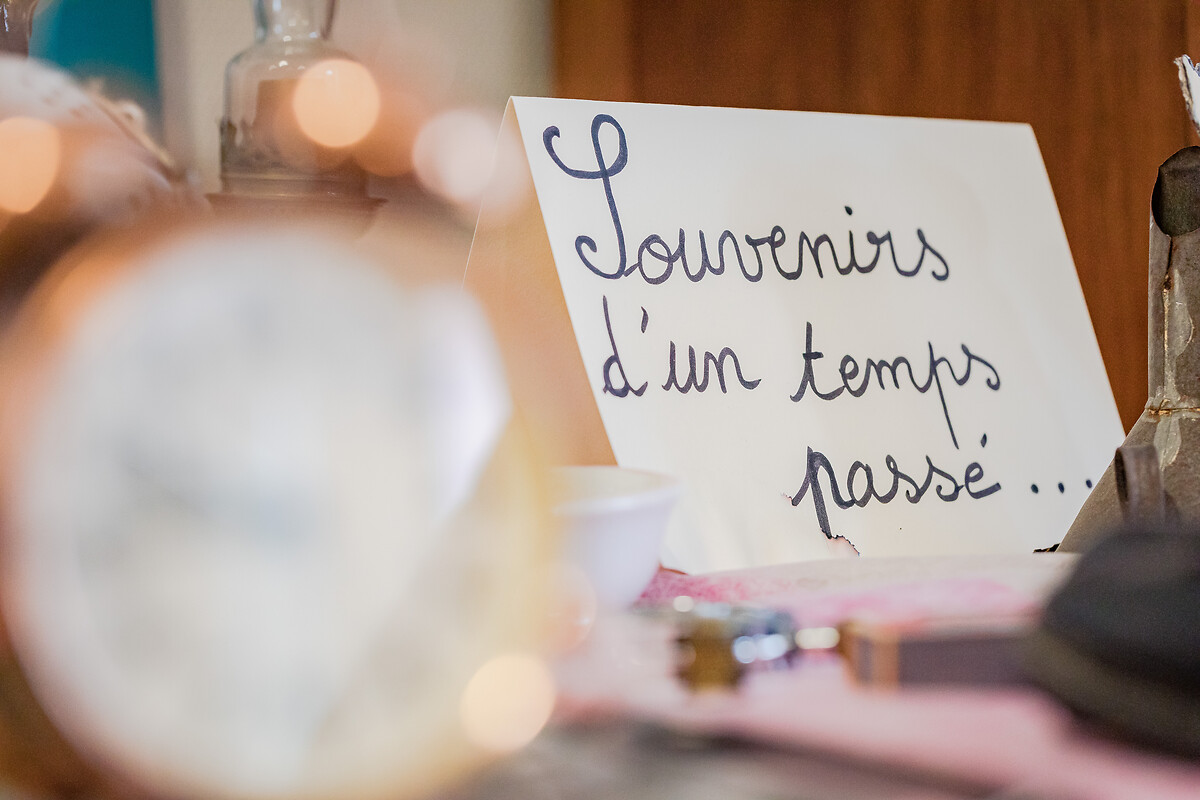 Souvenirs
d'un temps
passé...